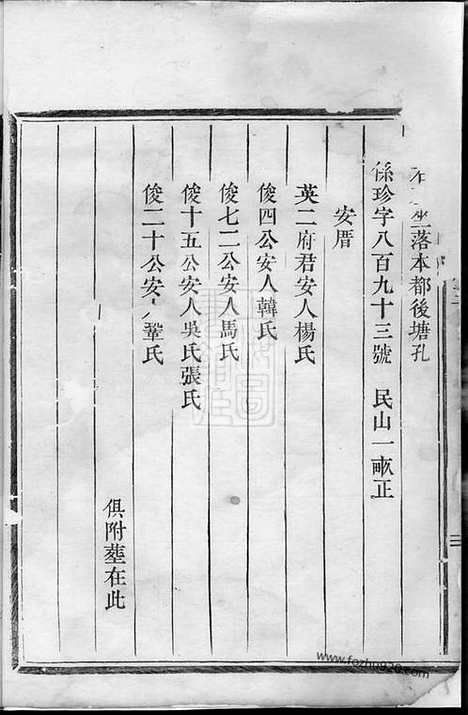 坐落本都後塘孔
係珍字八百九十三號 民山一畝正
安厝
英二府君安人楊氏
俊四公安人韓氏
俊七二公安人馬氏
俊十五公安人吳氏張氏
俊二十公安人鞏氏
俱附塟在此
www.fozhu920.com